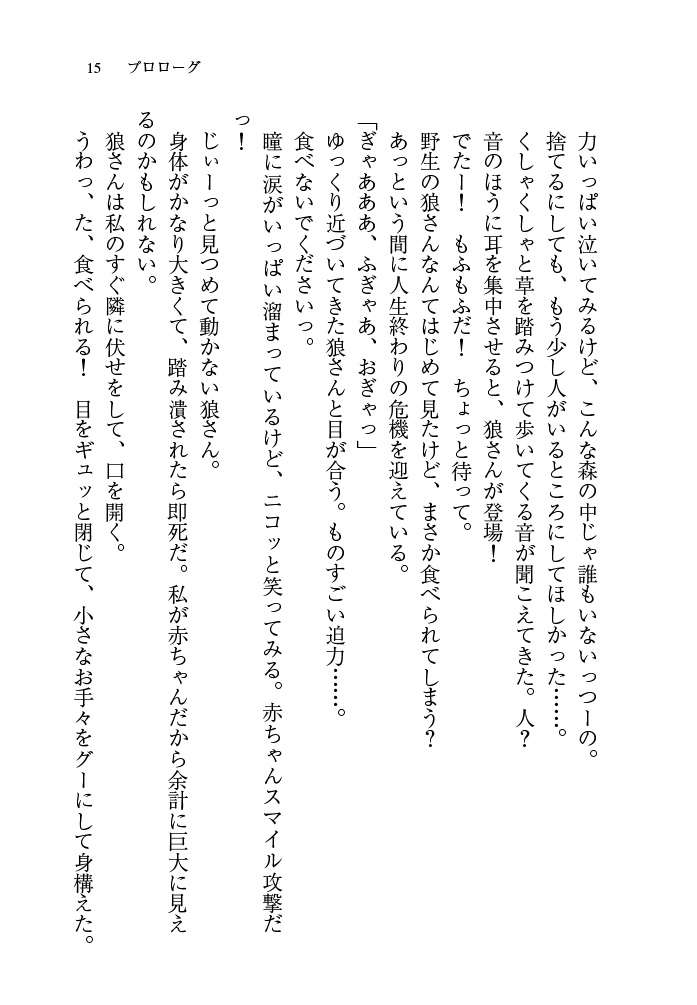 15　プロローグ
力いっぱい泣いてみるけど、こんな森の中じゃ誰もいないっつーの。
捨てるにしても、もう少し人がいるところにしてほしかった……。
くしゃくしゃと草を踏みつけて歩いてくる音が聞こえてきた。人？
音のほうに耳を集中させると、狼さんが登場！
でたー！　もふもふだ！　ちょっと待って。
野生の狼さんなんてはじめて見たけど、まさか食べられてしまう？
あっという間に人生終わりの危機を迎えている。
「ぎゃあああ、ふぎゃあ、おぎゃっ」
ゆっくり近づいてきた狼さんと目が合う。ものすごい迫力……。
食べないでくださいっ。
瞳に涙がいっぱい溜まっているけど、ニコッと笑ってみる。赤ちゃんスマイル攻撃だ
っ！
じぃーっと見つめて動かない狼さん。
身体がかなり大きくて、踏み潰されたら即死だ。私が赤ちゃんだから余計に巨大に見え
るのかもしれない。
狼さんは私のすぐ隣に伏せをして、口を開く。
うわっ、た、食べられる！　目をギュッと閉じて、小さなお手々をグーにして身構えた。